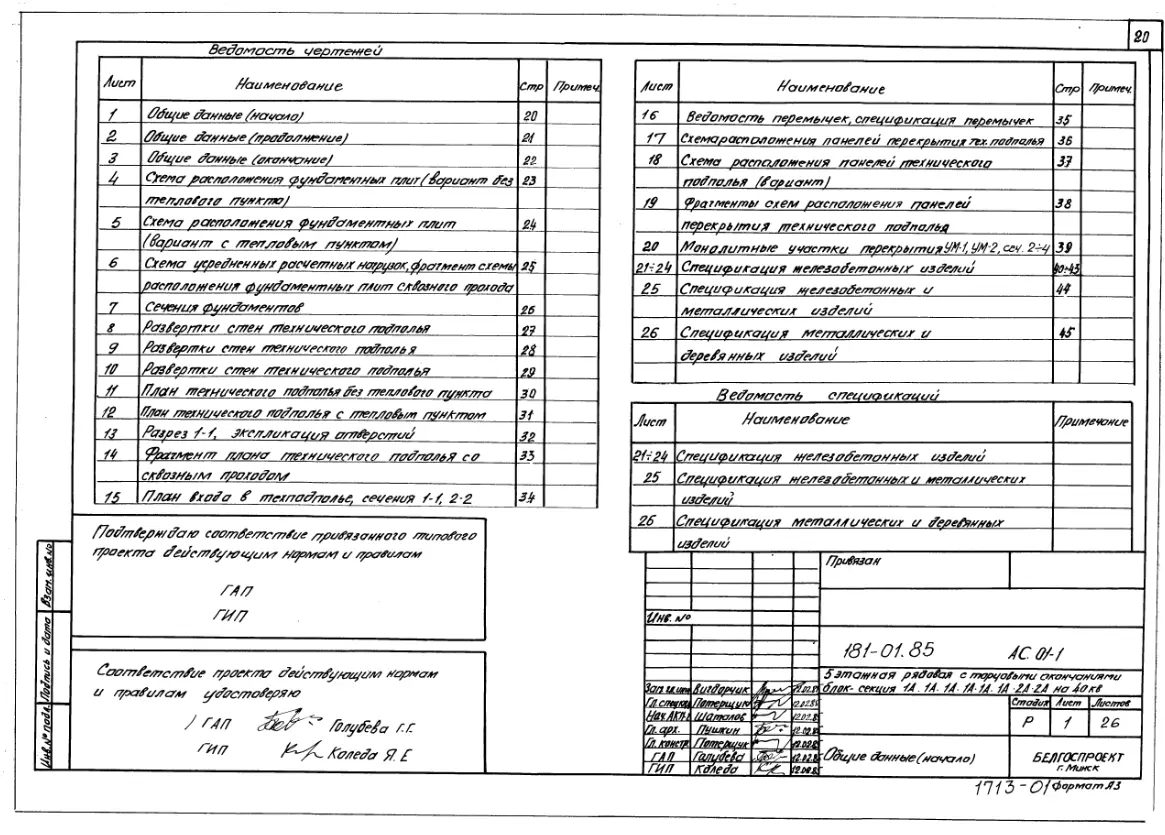 20
Ведомость чертежей
Лист Наименование Стр Примеч.
1 Общие данные (начало) 20
2 Общие данные (продолжение) 21
3 Общие данные (окончание) 22
4 Схема расположения фундаментных плит (вариант без 23
теплового пункта)
5 Схема расположения фундаментных плит 24
(вариант с тепловым пунктом)
6 Схема усредненных расчетных нагрузок, фрагмент схемы 25
расположения фундаментных плит сквозного прохода
7 Сечения фундаментов 26
8 Развертки стен технического подполья 27
9 Развертки стен технического подполья 28
10 Развертки стен технического подполья 29
11 План технического подполья без теплового пункта 30
12 План технического подполья с тепловым пунктом 31
13 Разрез 1-1, экспликация отверстий 32
14 Фрагмент плана технического подполья со 33
сквозным проходом
15 План входа в техподполье, сечения 1-1, 2-2 34
Лист Наименование Стр Примеч.
16 Ведомость перемычек, спецификация перемычек 35
17 Схема расположения панелей перекрытия тех. подполья 36
18 Схема расположения панелей технического 37
подполья (вариант)
19 Фрагменты схем расположения панелей 38
перекрытия технического подполья
20 Монолитные участки перекрытия УМ-1, УМ-2, сеч. 2÷4 39
21÷24 Спецификация железобетонных изделий 40÷43
25 Спецификация железобетонных и 44
металлических изделий
26 Спецификация металлических и 45
деревянных изделий
Ведомость спецификаций
Лист Наименование Примечание
21÷24 Спецификация железобетонных изделий
25 Спецификация железобетонных и металлических
изделий
26 Спецификация металлических и деревянных
изделий
Подтверждаю соответствие привязанного типового
проекта действующим нормам и правилам
ГАП
ГИП
Соответствие проекта действующим нормам
и правилам удостоверяю
ГАП Голубева Г.Г.
ГИП Коледа Я.Е
Инв.№ подл. Подпись и дата Взам. инв.№
Привязан
Инв. №
181-01.85 АС.01-1
5 этажная рядовая с торцовыми окончаниями
блок-секция 1А.1А.1А.1А.1А.1А-2А-2А на 40 кв
Зам.гл.инж Вигдорчик
Гл.спец.кон Потерщук 12.02.85
Нач.АКП-2 Шаталов 12.02.8
Гл.арх. Пушкин 12.02.8
Гл.констр. Потерщук 12.02.8
ГАП Голубева 12.02.8
ГИП Коледа 12.02.8
Стадия Лист Листов
Р 1 26
Общие данные (начало)
БЕЛГОСПРОЕКТ
г. Минск
1713-01 Формат А3